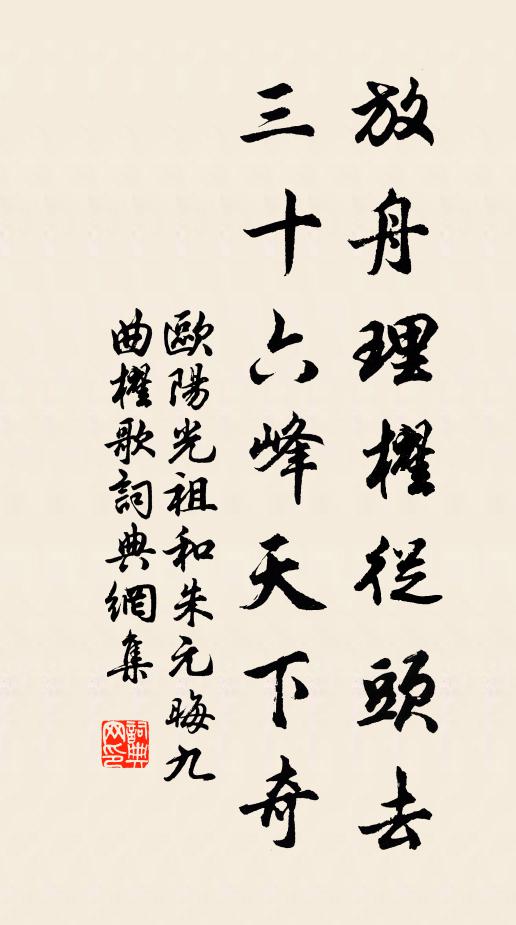 放舟理櫂從頭去
三十六峰天下奇
歐陽光祖和朱元晦九
曲櫂歌詞典網集
詞典网印